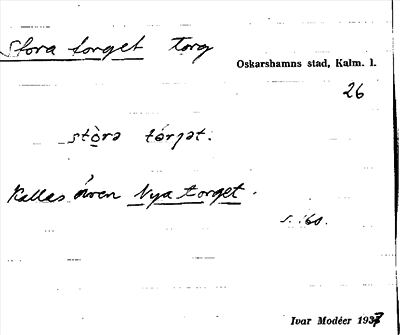 Stora torget torg
Oskarshamns stad, Kalm. l.
26
stòrə tórjət.
Kallas även Nya torget.
s. 60.
Ivar Modéer 1937